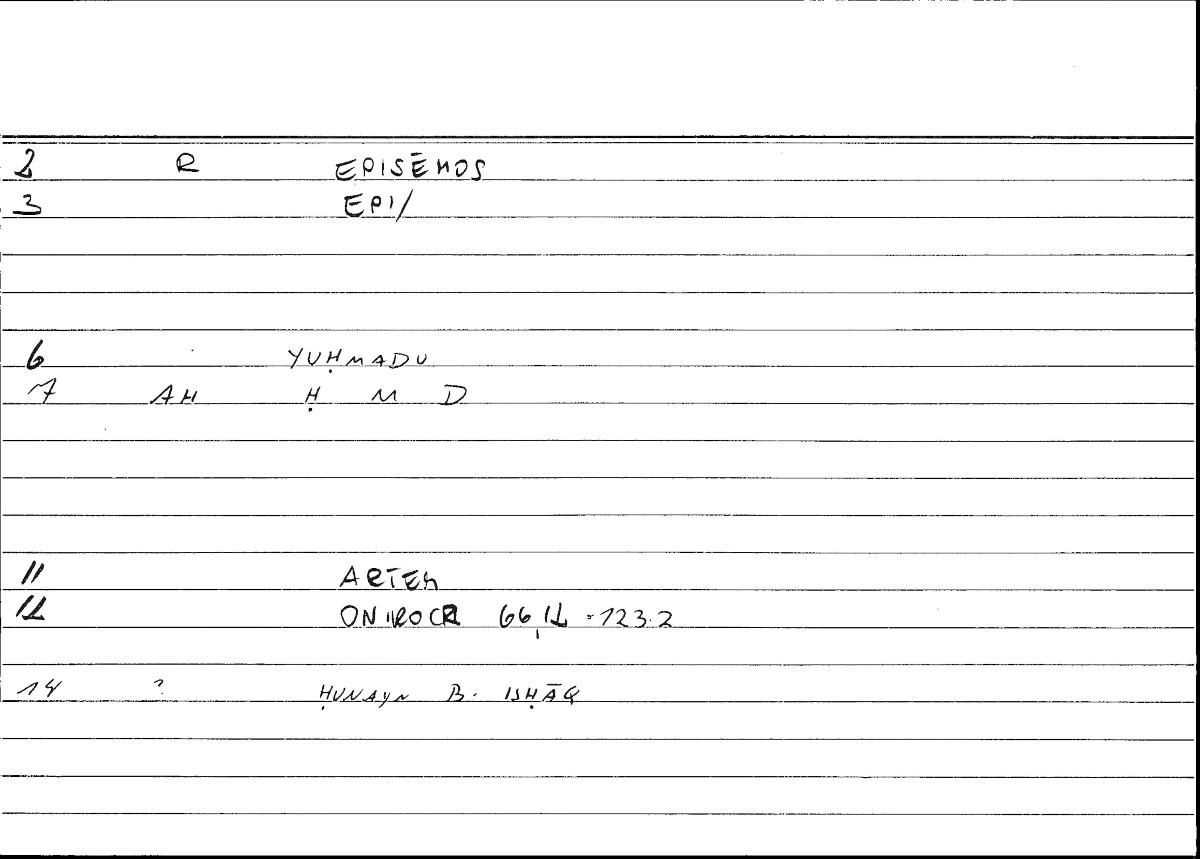 2 R EPISĒMOS
3 EPI/
6 YUḤMADU
7 AH Ḥ M D
11 ARTEM
12 ONIROCR 66,12 = 123.2
14 ? ḤUNAYN B. ISḤĀQ